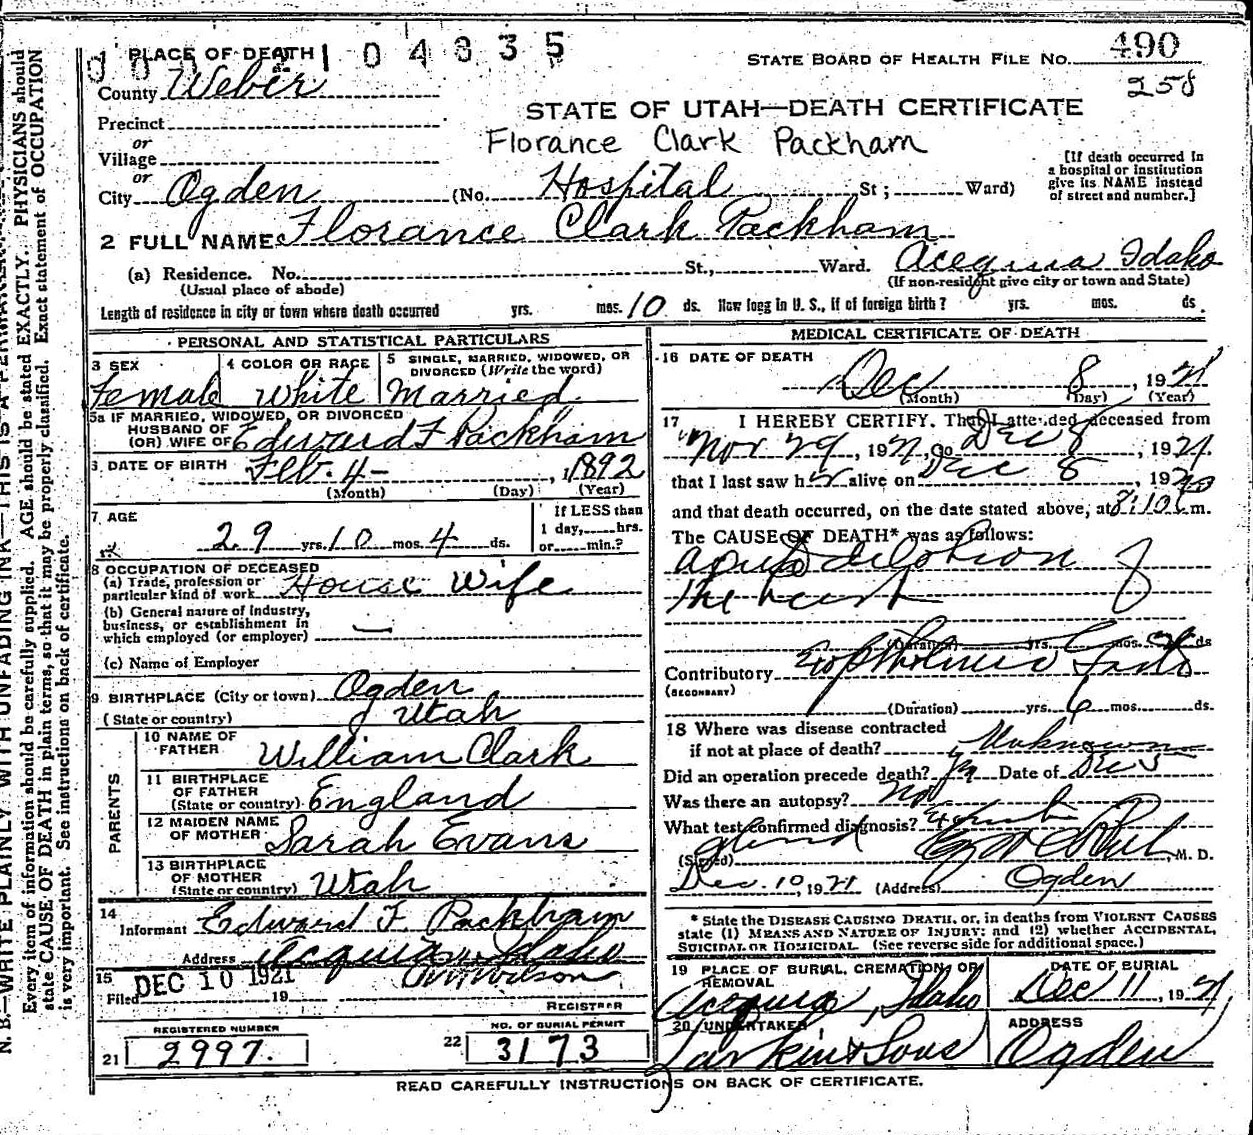 N. B.—WRITE PLAINLY, WITH UNFADING INK—THIS IS A PERMANENT
Every item of information should be carefully supplied. AGE should be stated EXACTLY. PHYSICIANS should
state CAUSE OF DEATH in plain terms, so that it may be properly classified. Exact statement of OCCUPATION
is very important. See instructions on back of certificate.
PLACE OF DEATH
104835
STATE BOARD OF HEALTH FILE NO. 490
County Weber
258
STATE OF UTAH—DEATH CERTIFICATE
Precinct
Florance Clark Packham
or
Village
or
[If death occurred in
a hospital or institution
give its NAME instead
of street and number.]
City Ogden (No. Hospital St; Ward)
2 FULL NAME Florance Clark Packham
(a) Residence. No. St., Ward. Acequia Idaho
(Usual place of abode) (If non-resident give city or town and State)
Length of residence in city or town where death occurred yrs. mos. 10 ds. How long in U. S., if of foreign birth? yrs. mos. ds.
PERSONAL AND STATISTICAL PARTICULARS
3 SEX
Female
4 COLOR OR RACE
White
5 SINGLE, MARRIED, WIDOWED, OR
DIVORCED (Write the word)
Married
5a IF MARRIED, WIDOWED, OR DIVORCED
HUSBAND OF
(OR) WIFE OF Edward F Packham
6. DATE OF BIRTH Feb. 4- , 1892
(Month) (Day) (Year)
7 AGE
29 yrs. 10 mos. 4 ds.
if LESS than
1 day, hrs.
or min.?
8 OCCUPATION OF DECEASED
(a) Trade, profession or
particular kind of work House Wife
(b) General nature of industry,
business, or establishment in
which employed (or employer) —
(c) Name of Employer
9 BIRTHPLACE (City or town) Ogden
(State or country) Utah
PARENTS
10 NAME OF
FATHER William Clark
11 BIRTHPLACE
OF FATHER
(State or country) England
12 MAIDEN NAME
OF MOTHER Sarah Evans
13 BIRTHPLACE
OF MOTHER
(State or country) Utah
14
Informant Edward F. Packham
Address Acequia, Idaho
15
Filed DEC 10 1921 19 Wilson
REGISTRAR
REGISTERED NUMBER
21 2997.
NO. OF BURIAL PERMIT
22 3173
MEDICAL CERTIFICATE OF DEATH
16 DATE OF DEATH
Dec 8, 1921
(Month) (Day) (Year)
17 I HEREBY CERTIFY. That I attended deceased from
Nov 29, 1921, to Dec 8, 1921.
that I last saw her alive on Dec 8, 192
and that death occurred, on the date stated above, at 8:10 m.
The CAUSE OF DEATH* was as follows:
of
the heart
(Duration) yrs. mos. ds
Contributory
(SECONDARY)
(Duration) yrs. 6 mos. ds.
18 Where was disease contracted
if not at place of death? Unknown
Did an operation precede death? Date of Dec 5
Was there an autopsy? No
What test confirmed diagnosis?
(Signed) , M. D.
Dec 10, 1921 (Address) Ogden
* State the DISEASE CAUSING DEATH, or, in deaths from VIOLENT CAUSES
state (1) MEANS AND NATURE OF INJURY; and (2) whether ACCIDENTAL,
SUICIDAL OR HOMICIDAL. (See reverse side for additional space.)
19 PLACE OF BURIAL, CREMATION, OR
REMOVAL
Acequia, Idaho
DATE OF BURIAL
Dec 11, 1921
20 UNDERTAKER
Larkin & Sons
ADDRESS
Ogden
READ CAREFULLY INSTRUCTIONS ON BACK OF CERTIFICATE.